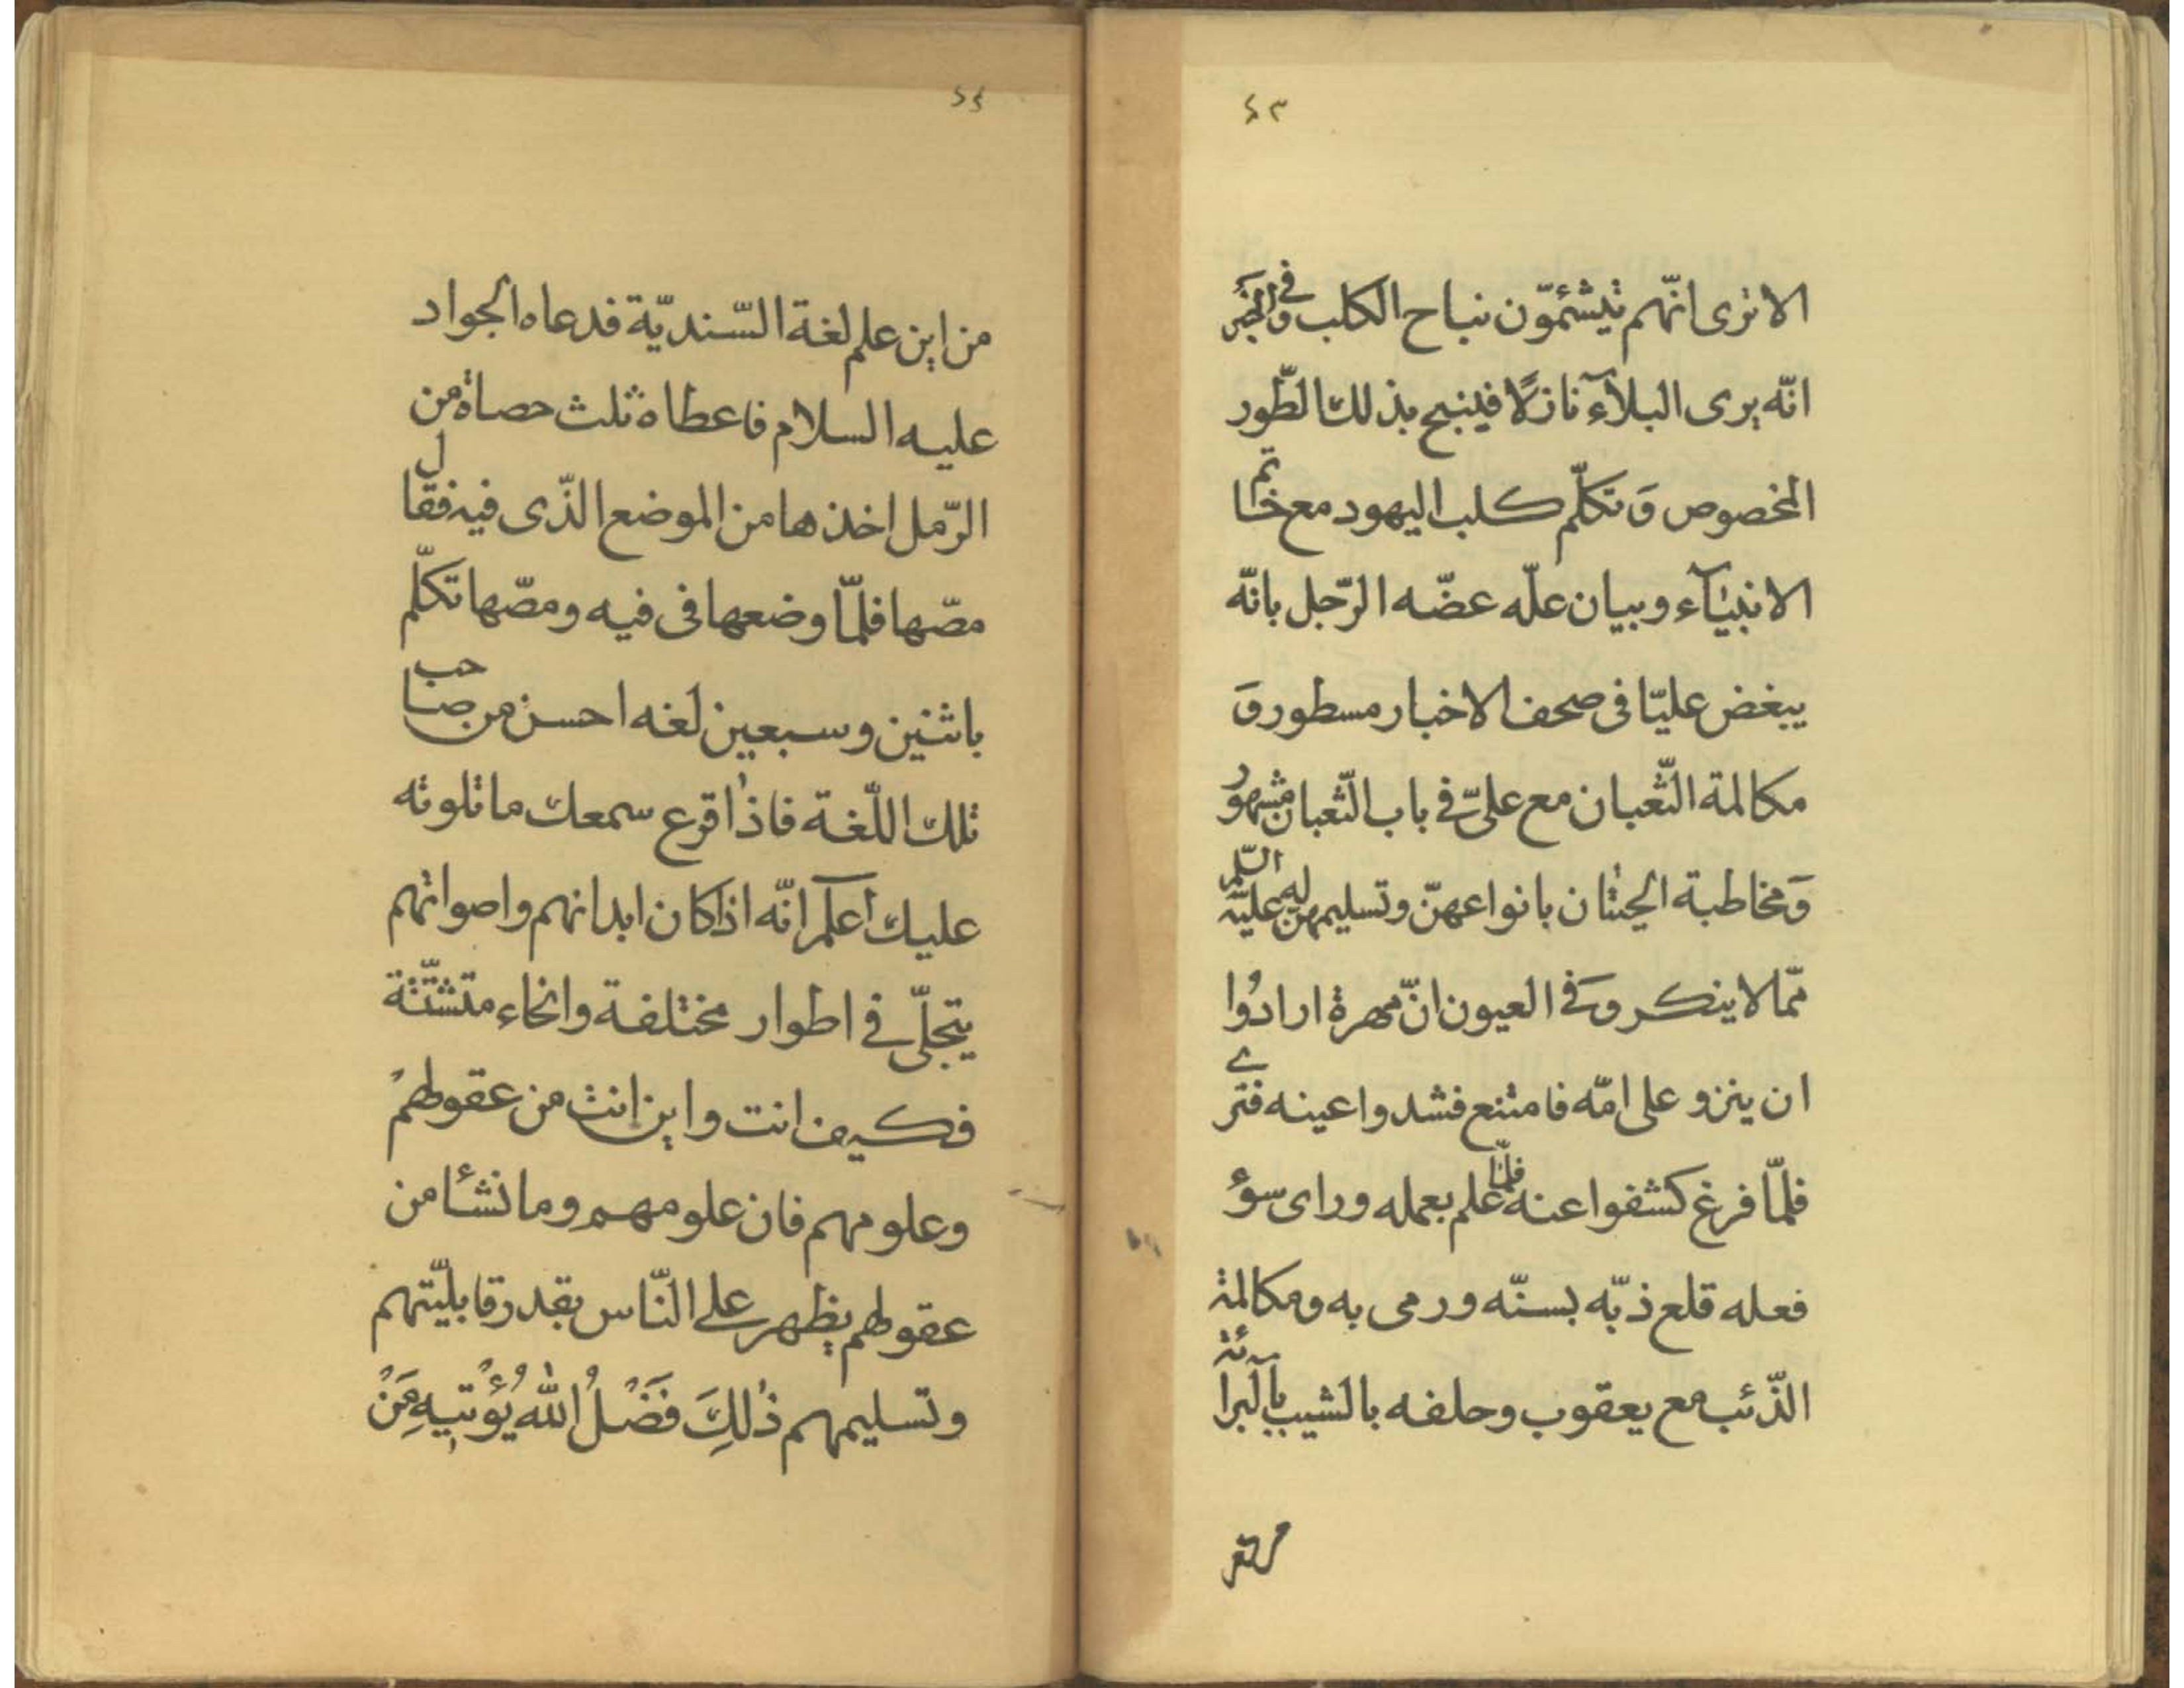 ٤٣
الا ترى انّهم تيشئمّون نباح الكلب وفى الخبر
انّه يرى البلآء نازلًا فينبح بذلك الطّور
المخصوص وَ تكلّم كلب اليهود مع خاتم
الانبيآء وبيان علّه عضّه الرّجل بانّه
يبغض عليّا فى صحف الاخبار مسطور وَ
مكالمة الثّعبان مع علىّ فى باب الثّعبان مشهور
وَ مخاطبة الحيتان بانواعهنّ وتسليمهن عليه السّلم
ممّا لا ينكر وَ فى العيون انّ مهرة ارادُوا
ان ينزو على امّه فامتنع فشدوا عينه فترى
فلمّا فرغ كشفوا عنه فلمّا علم بعمله وراى سوٓء
فعله قلع ذبّه بسنّه ورمى به ومكالمة
الذّئب مع يعقوب وحلفه بالشيب بالبرائة
٤٤
من اين علم لغة السّنديّة فدعاه الجواد
عليه السلام فاعطاه ثلث حصاة من
الرّمل اخذها من الموضع الذّى فيه فقال
مصّها فلمّا وضعها فى فيه ومصّها تكلّم
باثنين وسبعين لغه احسن من صاحب
تلك اللّغة فاذا قرع سمعك ما تلوته
عليك اعلم انّه اذا كان ابدانهم واصواتهم
يتجلّى فى اطوار مختلفة وانحاء متشتّتة
فكيف انت واين انت من عقولهم
وعلومهم فان علومهم وما نشئا من
عقولهم يظهر على النّاس بقدر قابليّتهم
وتسليمهم ذٰلِكَ فَضْلُ اللّٰهِ يُؤْتيهِ مَنْ